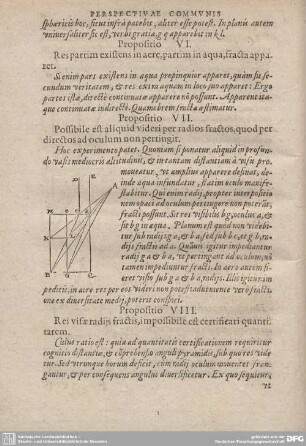 PERSPECTIVAE COMMVNIS
sphæricis hoc, sicut infrà patebit, aliter esse potest. In planis autem
vniuersaliter sic est, verbi gratia, g q apparebit in k l.
Propositio VI.
Res partim existens in aere, partim in aqua, fracta appa
ret.
Si enim pars existens in aqua propinquior apparet, quàm sit se-
cundum veritatem, & res extra aquam in loco suo apparet: Ergo
partes istæ, directè continuatæ apparere nõ possunt. Apparent itaq;
que continuatæ indirectè. Quamobrem fracta æstimatur.
Propositio VII.
Possibile est aliquid videri per radios fractos, quod per
directos ad oculum non pertingit.
Huc experimento patet. Quoniam si ponatur aliquid in profun-
do vasis mediocris altitudinis, & in tantum distantiam à visu pro-
moueatur, vt amplius apparere desinat,
deinde aqua infundatur, statim eundo manife-
stabitur. Qui enim radij, propter interpositio
nem opaci ad oculum pertingere non poterãt,
fracti possunt. Sit res visibilis b g, oculus a, &
sit b g in aqua. Planum est quod non videbi-
tur sub radijs g a, & b a, sed sub b e, et g h, ra-
dijs fractis ad a. Quãuis igitur impediantur
radij g a & b a, ne pertingant ad oculum, nõ
tamen impediuntur fracti. In aere autem fi-
eret visio sub g a & b a, radijs. Illis igitur im
peditis, in aere res per eos videri non potest: aduenientè verò fracti-
one ex diuersitate medij, poterit conspici.
Propositio VIII.
Rei visæ radijs fractis, impossibile est certificari quanti
tatem.
Cuius ratio est: quia ad quantitatis certificationem requiritur
cognitio distantiæ, & cõprehensio anguli pyramidis, sub quo res vide
tur. Sed vtrumque horum deficit, cum radij oculum mouentes fran-
gantur, & per consequens angulus diuersificetur. Ex quo sequitur,
vt